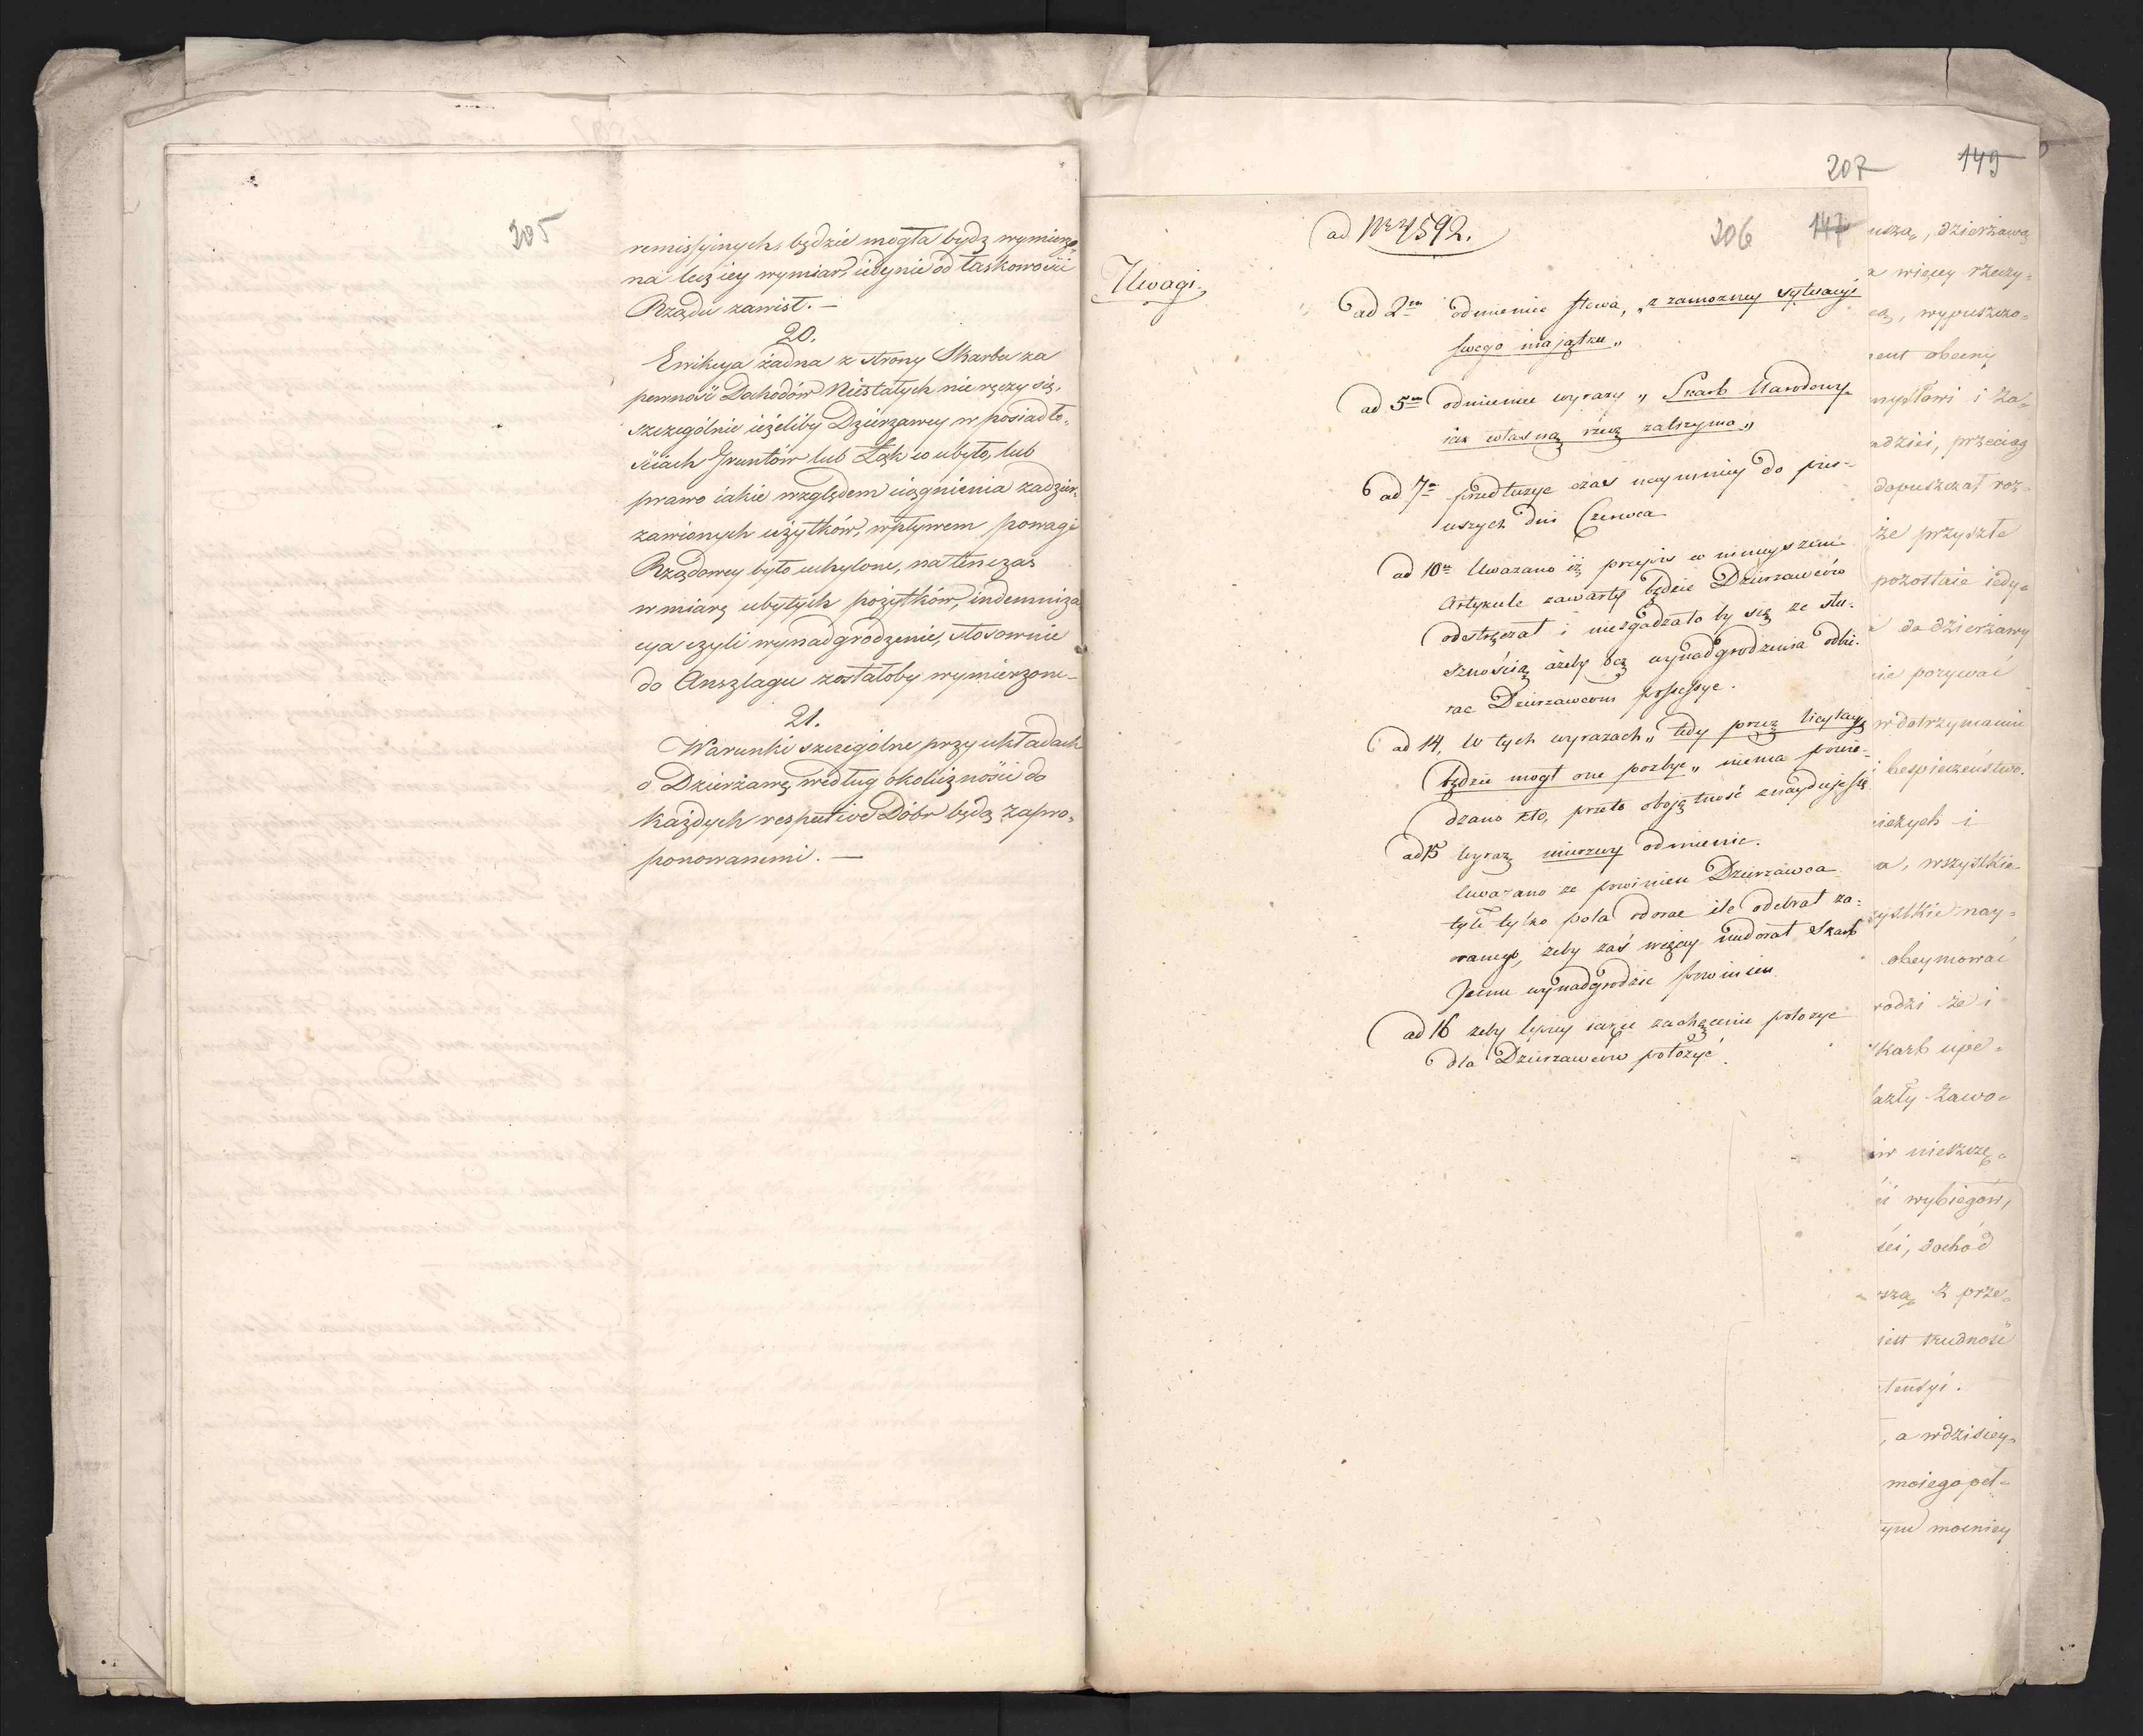 205
remissyinych, będzie mogła bydz wymierzo„
na lecz iey wymiar iedynie od łaskowości
Rządu zawisł. —
20.
Ewikcya żadna z strony Skarbu za
pewność Dochodów Niestałych nie ręczy się,
szczególnie ieżeliby Dzierzawcy w posiadło„
ściach Gruntów lub Łąk co ubyło, lub
prawo iakie względem ciągnienia zadzier„
zawionych użytków, wpływem powagi
Rządowey było uchylone, natenczas
w miarę ubytych pożytków, indemniza
cya czyli wynadgrodzenie, stosownie
do Anszlagu zostałoby wymierzone —
21.
Warunki szczególne przy układach
o Dzierżawę według okoliczności do
każdych respective Dóbr będą zapro„
ponowanemi. —
207 149
206 147
ad Nr 4592.
Uwagi
ad 2m odmienic słowa, „z zamozney sytuacyi
swego majątku„
ad 5m odmienic wyrazy „Skarb Narodowy
iak własną rzecz zatrzyma„
ad 7m przedłuzyc czas naymniey do pier-
wszych dni Czerwca
ad 10m Uwazano iż przepis w ninieyszém
Artykule zawarty będzie Dzierzawców
odstręczał i niezgadzało by się ze słu-
sznością azeby bez wynadgrodzenia odbie-
rac Dzierzawcom possessye.
ad 14, w tych wyrazach „tedy przez licytacyę
będzie mogł one pozbyc„ niema powie-
dzano kto, przeto obojętność znayduje się
ad 15 wyraz mierzwy odmienic.
Uwazano ze powinien Dzierzawca
tyle tylko pola odorac ile odebrał za-
oranego, zeby zaś więcey nadorał Skarb
Jemu wynadgrodzic powinien
ad 16 zeby lepiey iakie zachęcenie polozyc
dla Dzierzawców położyć.
usza„, dzierżawą
a więcey rzeczy„
wypuszczo„
obecny
nysłowi i za„
adziei, przeciąg
dopuszczał roz„
że przyszłe
pozostaie iedy„
do dzierżawy
nie pozywać
w dotrzymaniu
bespieczeństwo.
ieżych i
a, wszystkie
zystkie nay„
obeymować
rodzi że i
Skarb upe„
azły zawo„
ów nieszczę„
wybiegów,
ści, dochód
szą z prze„
iest trudność
tensyi.
, a wdzisiey„
moiego peł„
tym mocniey